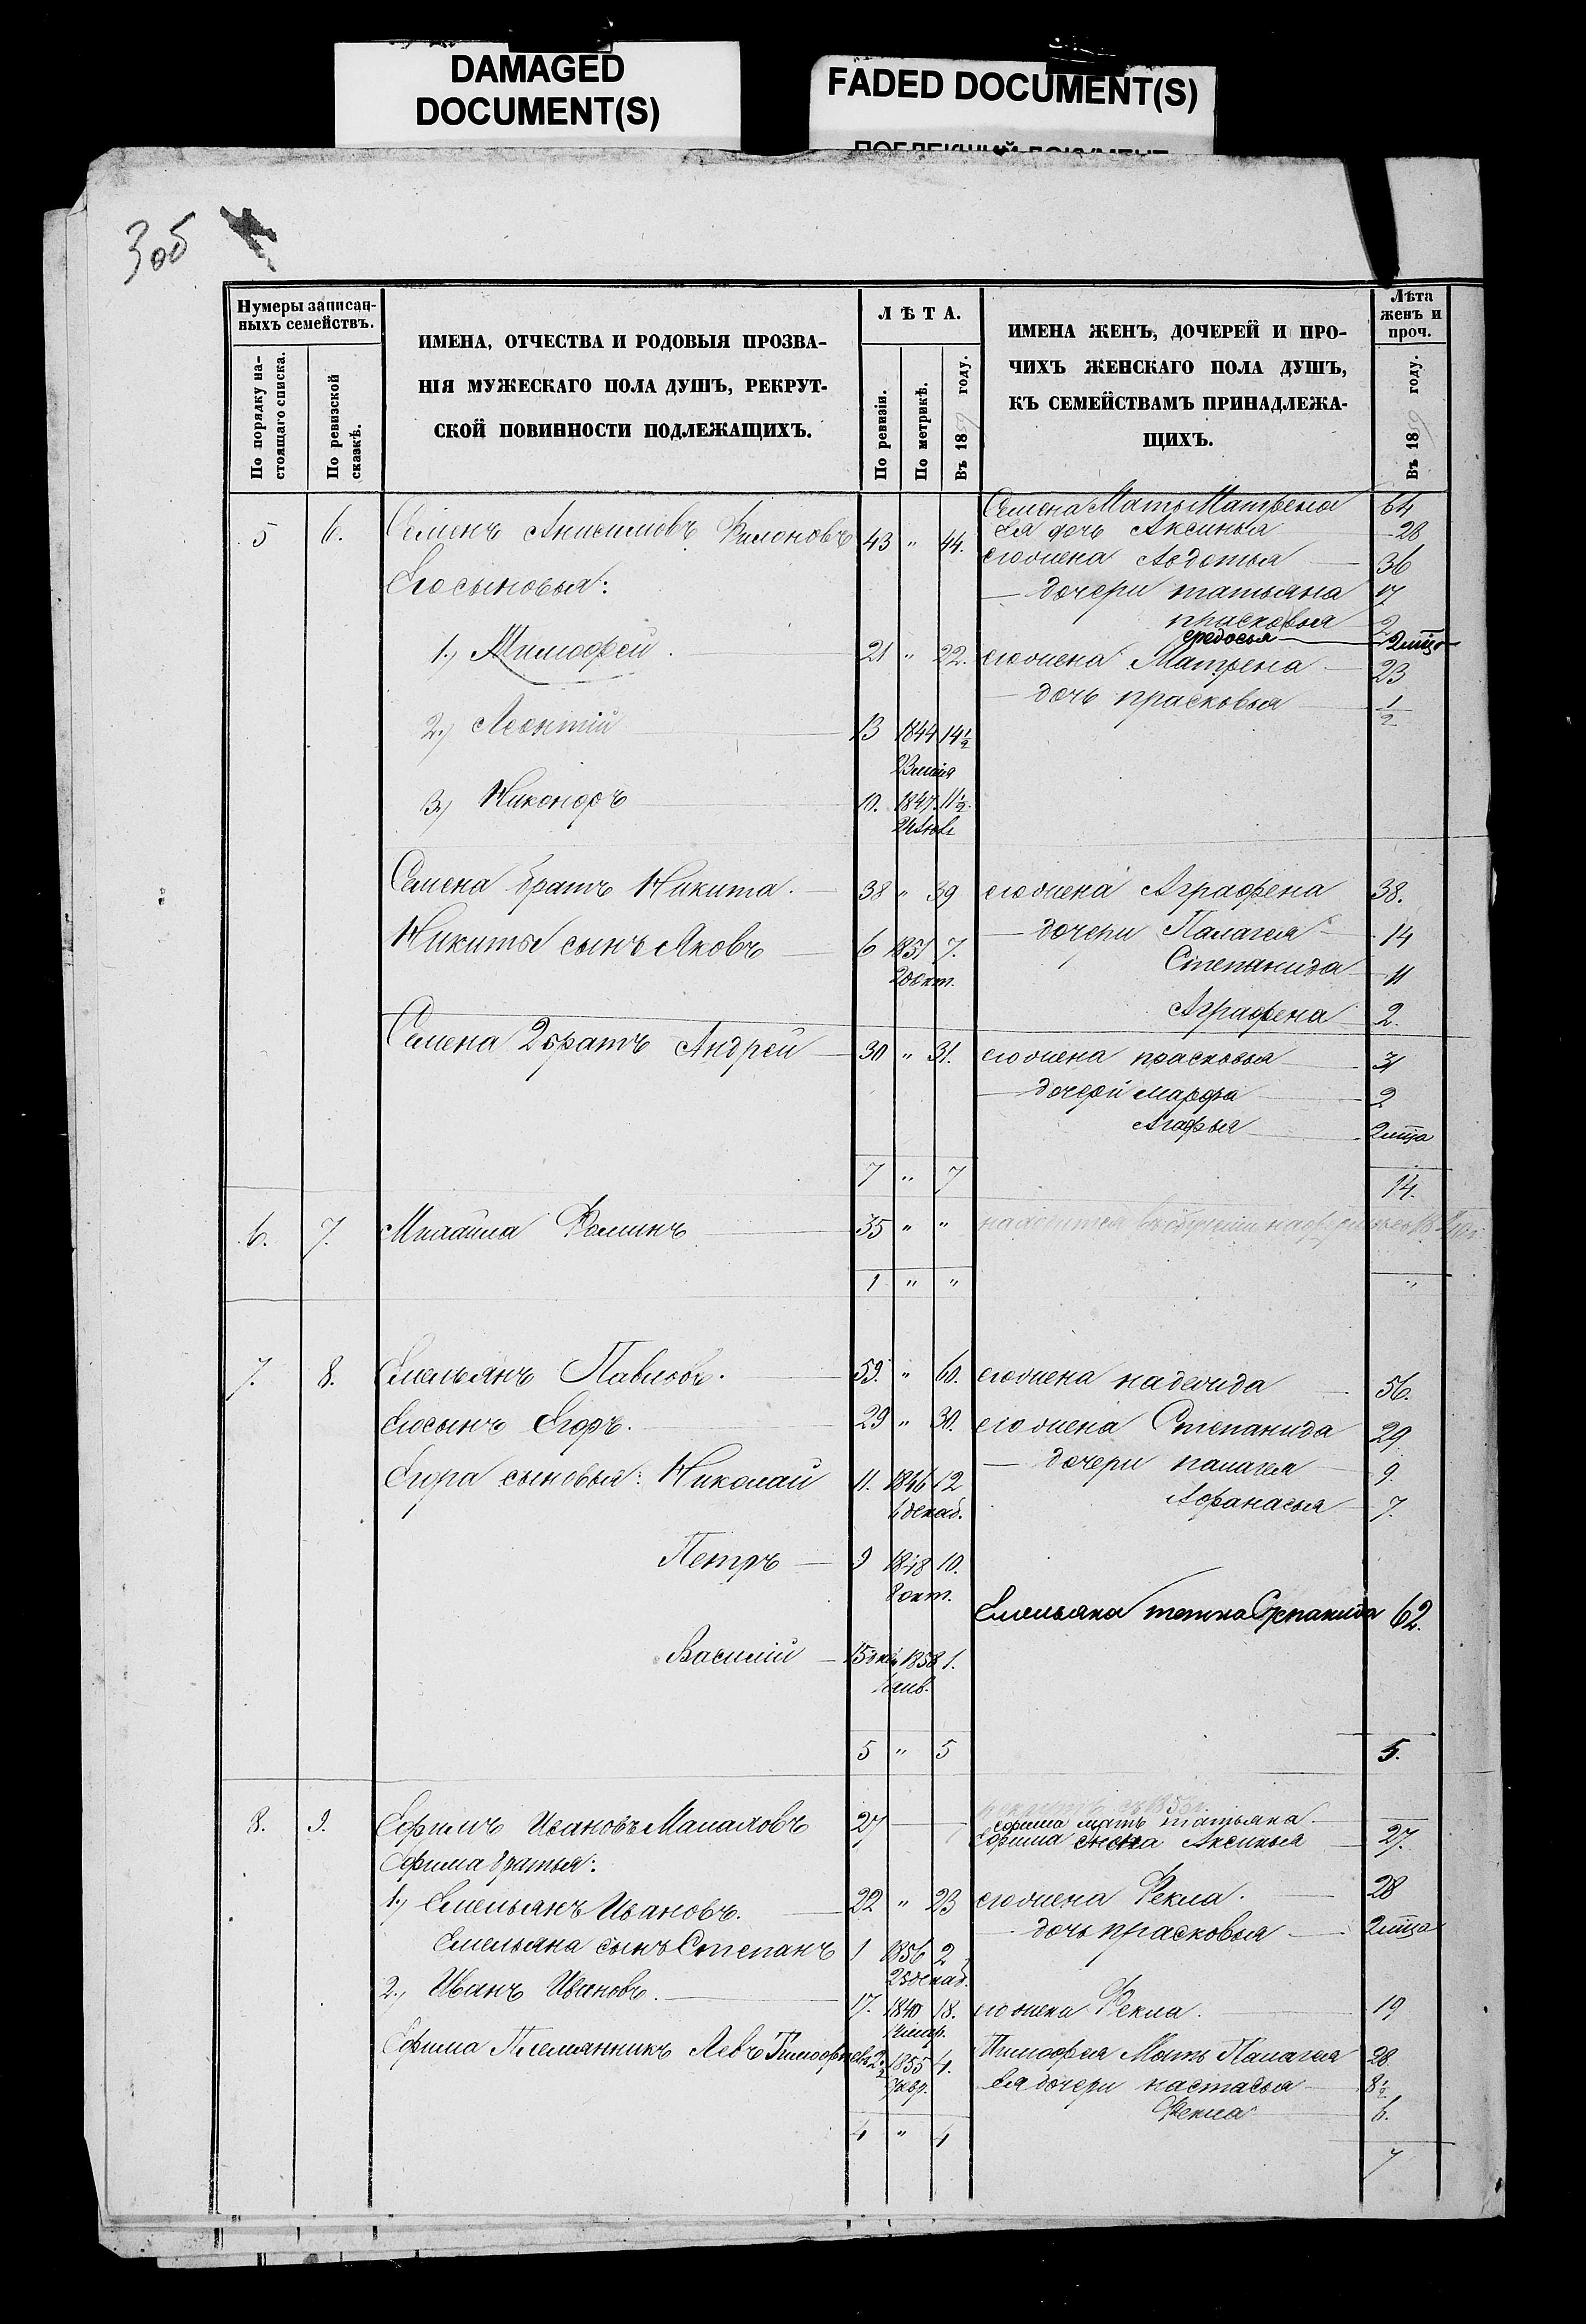 DAMAGED
DOCUMENT(S)
FADED DOCUMENT(S)
3об
Нумеры записан-
ныхъ семействъ.
По порядку на-
стоящаго списка.
По ревизской
сказкѣ.
ИМЕНА, ОТЧЕСТВА И РОДОВЫЯ ПРОЗВА-
НІЯ МУЖЕСКАГО ПОЛА ДУШЪ, РЕКРУТ-
СКОЙ ПОВИННОСТИ ПОДЛЕЖАЩИХЪ.
ЛѢТА.
По ревизіи.
По метрикѣ.
Въ 1859 году.
ИМЕНА ЖЕНЪ, ДОЧЕРЕЙ И ПРО-
ЧИХЪ ЖЕНСКАГО ПОЛА ДУШЪ,
КЪ СЕМЕЙСТВАМЪ ПРИНАДЛЕЖА-
ЩИХЪ.
Лѣта
женъ и
проч.
Въ 1859 году.
Семена Мать Матрена 64
5 6. Семенъ Анисимовъ Филоновъ 43 " 44. Ея дочь Аксинья 28
его жена Авдотья 36
Его сыновья: — дочери татьяна 17
прасковья 2
ѳедосья 2 мца
1.) Тимофей 21 " 22. его жена Матрена 23
— дочь прасковья 1/2
2.) Леонтій 13 1844 14 1/2
23 іюня
3.) Никоноръ 10. 1847. 11 1/2.
Семена братъ Никита. 38 " 39 его жена Аграфена 38.
Никиты сынъ Яковъ 6 1851 7. — дочери Палагея 14
окт. Степанида 11
Аграфена 2.
Семена 2 братъ Андрей 30 " 31. его жена прасковья 31
— дочери марфа 2
Агафья 2 мца
7 " 7 14.
6. 7. Михаила Фоминъ 35 " "
1 " " "
7. 8. Емельянъ Павловъ. 59. " 60. его жена надежида 56.
Его сынъ Егоръ. 29 " 30. его жена Степанида 29
Егора сыновья: Николай 11. 1846 12 — дочери палагея 9.
6 декаб. Афанасья 7.
Петръ 9 1848 10.
8 окт.
Емельяна тетка Степанида 62.
Василій 1858 1.
5 " 5 5.
8. 9. Ефимъ Ивановъ Малаховъ 27 Ефима мать татьяна
Ефима жена Аксинья 27.
Ефима братья:
1.) Емельянъ Ивановъ. 22 " 23 его жена Фекла. 28
— дочь прасковья 2 мца
Емельяна сынъ Степанъ 1 1856 2
декаб.
2.) Иванъ Ивановъ. 17. 1840 18. его жена Фекла. 19
Ефима Племянникъ Левъ Тимофеевъ 1855 4. Тимофея Мать Палагея 28
Ея дочери настасья 8 1/2
Фекла 6.
4 " 4 7